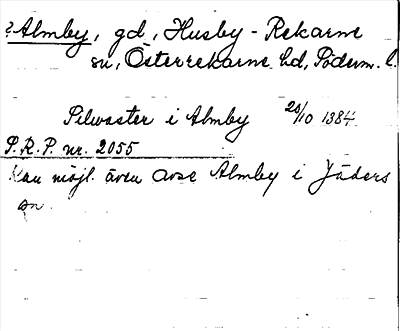 ? Almby, gd, Husby-Rekarne
sn, Österrekarne hd, Söderm. l.
Silwaster i Almby 20/10 1384.
S.R.P. nr. 2055
Kan möjl. även avse Almby i Jäders
sn.